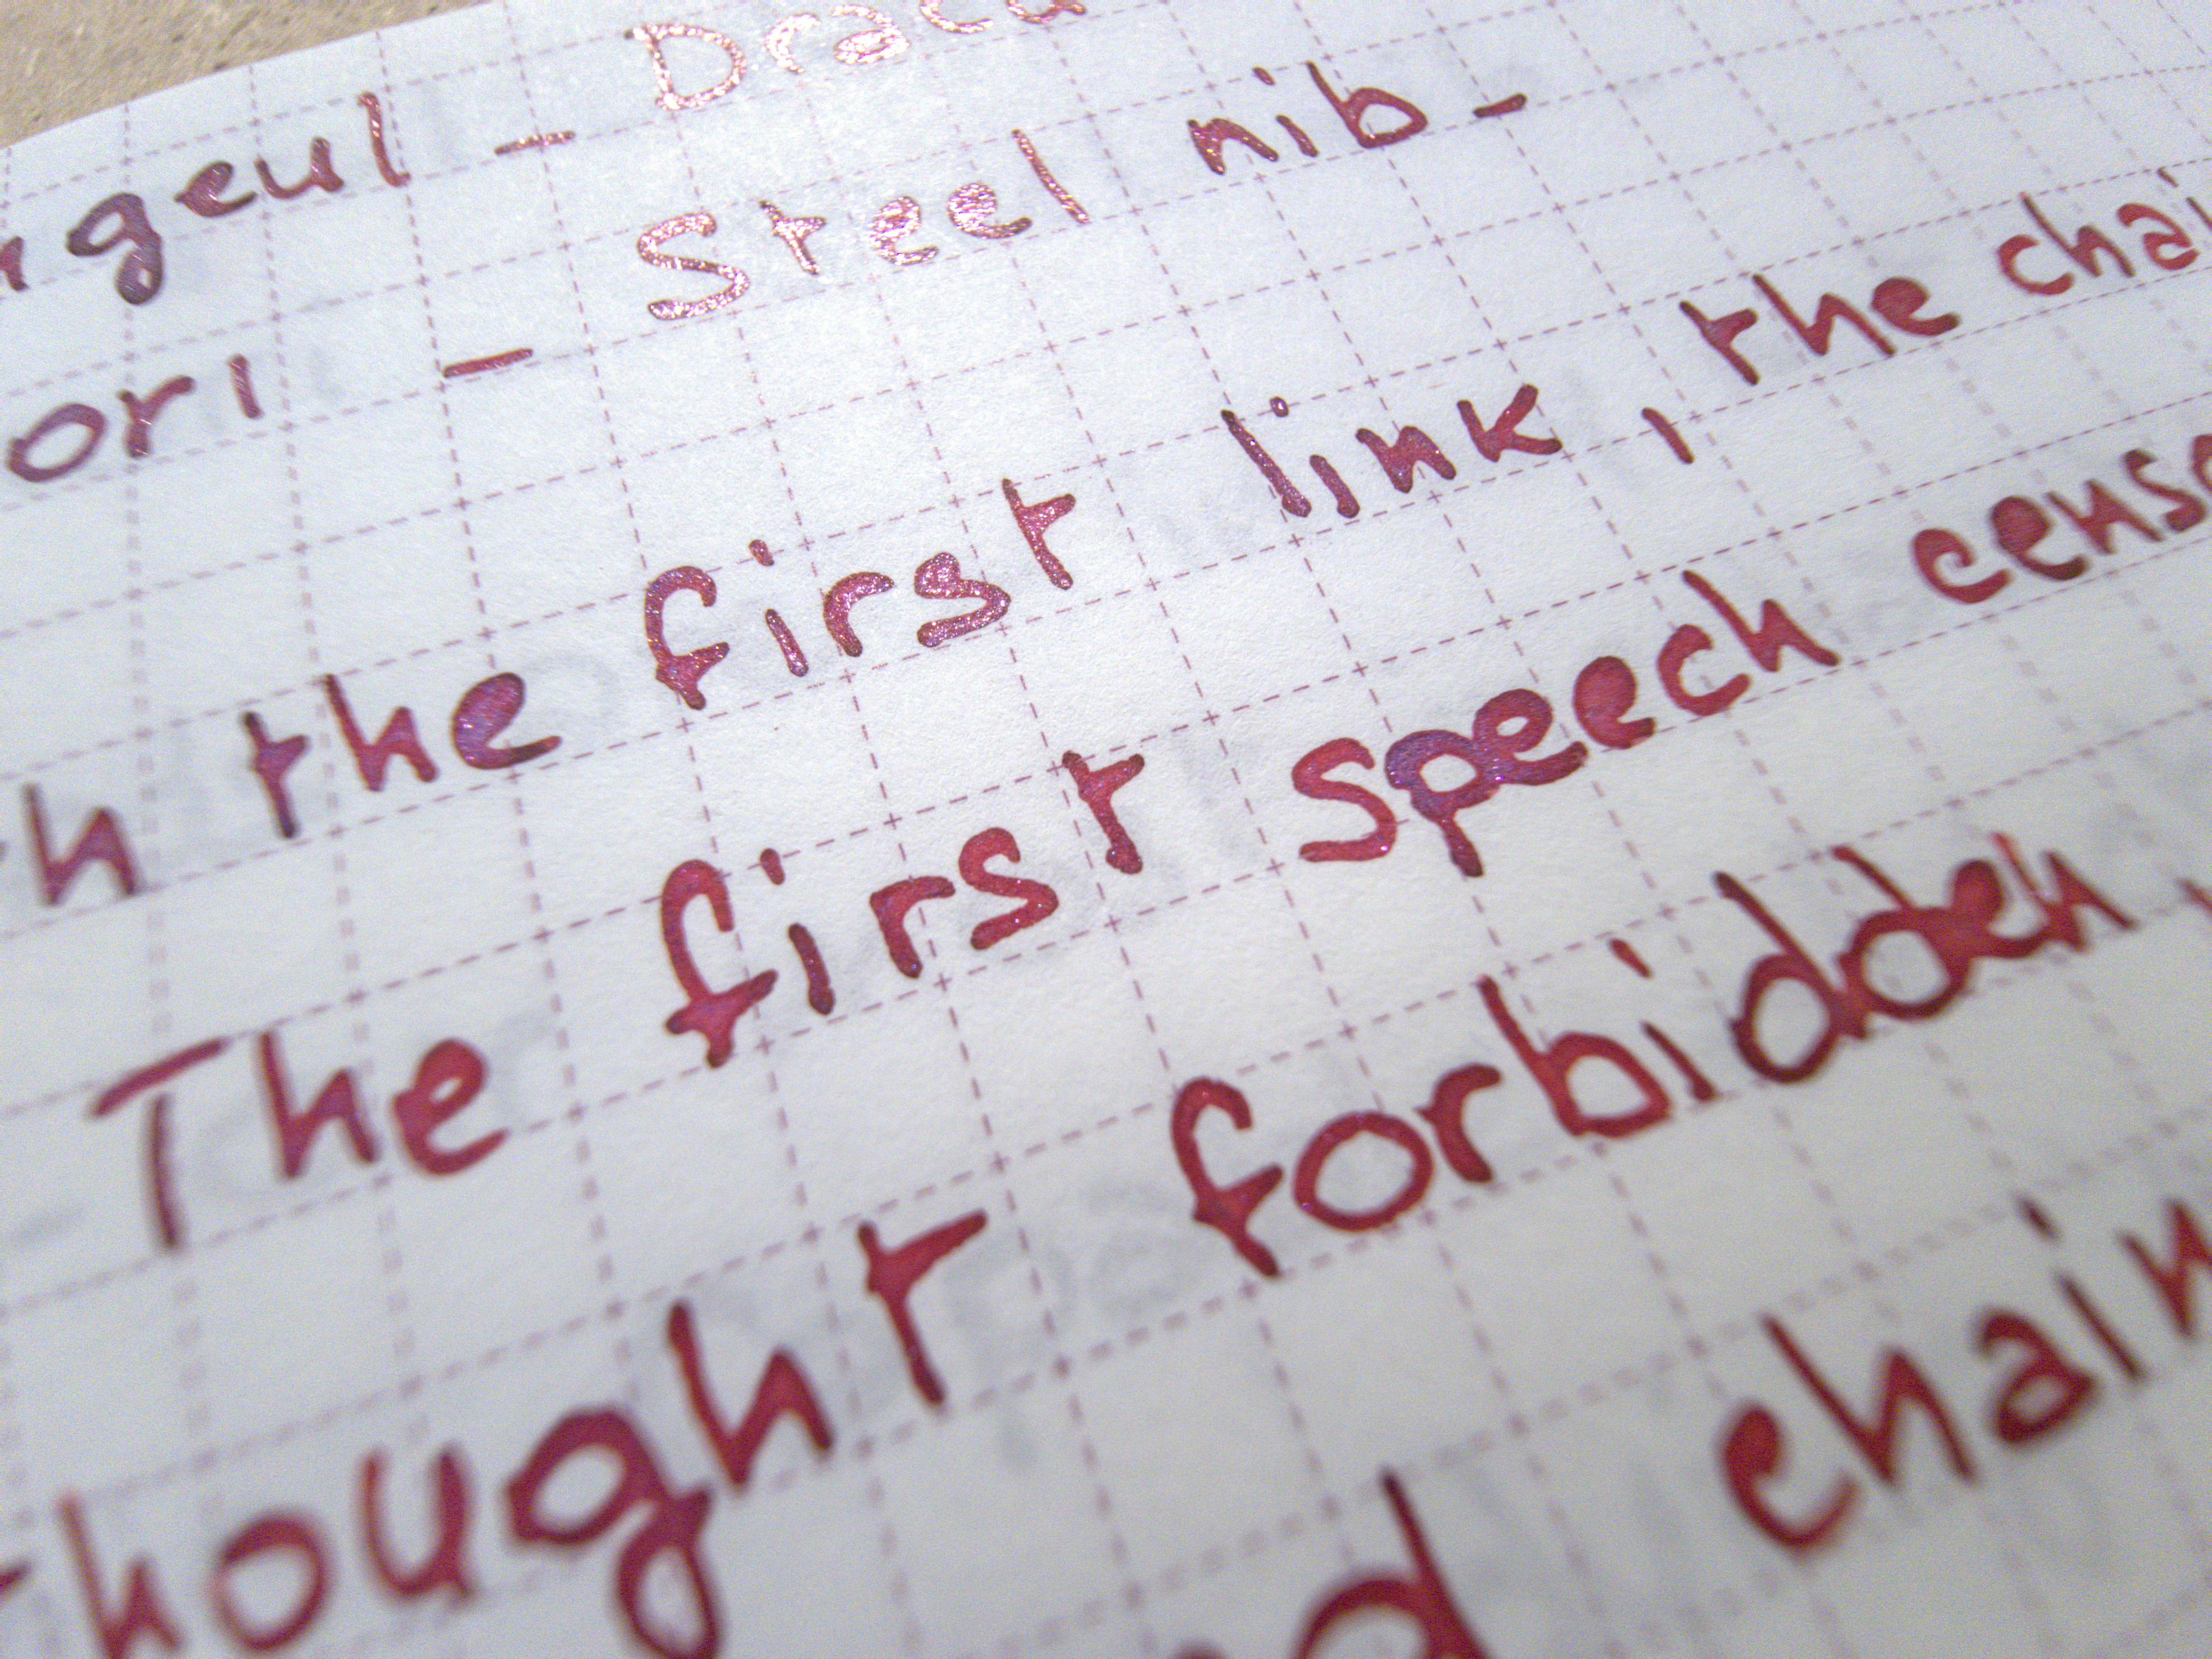 geul - Dracu
ori - Steel nib -
h the first link, the chai
The first speech censo
hought forbidden,
d chain